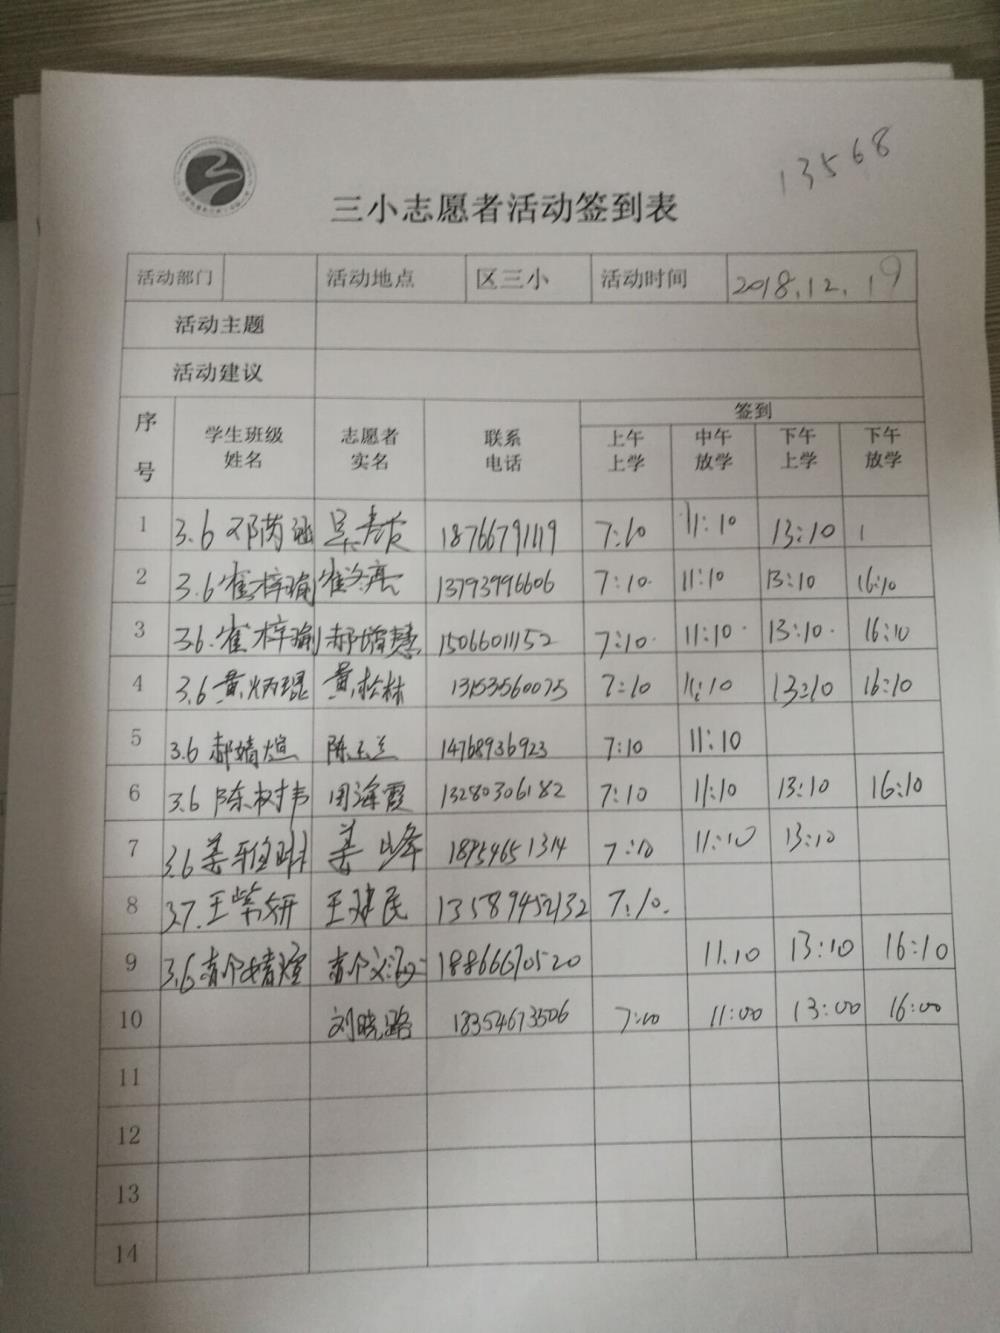 13568
三小志愿者活动签到表
活动部门 活动地点 区三小 活动时间 2018.12.19
活动主题
活动建议
序号 学生班级姓名 志愿者实名 联系电话 签到
上午上学 中午放学 下午上学 下午放学
1 3.6 邓芮涵 吴 18766791119 7:10 11:10 13:10 1
2 3.6 崔梓瑜 崔 亮 13793996606 7:10 11:10 13:10 16:10
3 3.6 崔梓瑜 郝 慧 15066011152 7:10 11:10 13:10 16:10
4 3.6 黄炳琨 黄松林 13153560075 7:10 11:10 13:10 16:10
5 3.6 郝婧煊 陈玉兰 14768936923 7:10 11:10
6 3.6 陈树伟 周海霞 13280306182 7:10 11:10 13:10 16:10
7 3.6 姜 姜峰 18954651314 7:10 11:10 13:10
8 3.7 王紫妍 王建民 13589452132 7:10.
9 3.6 婧煊 18866670520 11.10 13:10 16:10
10 刘晓路 18354673506 7:00 11:00 13:00 16:00
11
12
13
14